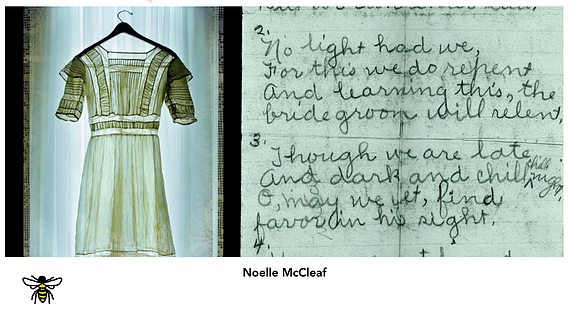 2.
No light had we,
For this we do repent
And learning this, the
bridegroom will relent.
3.
Though we are late
And dark and chill
O, may we yet, find
favor in his sight.
4.
Noelle McCleaf